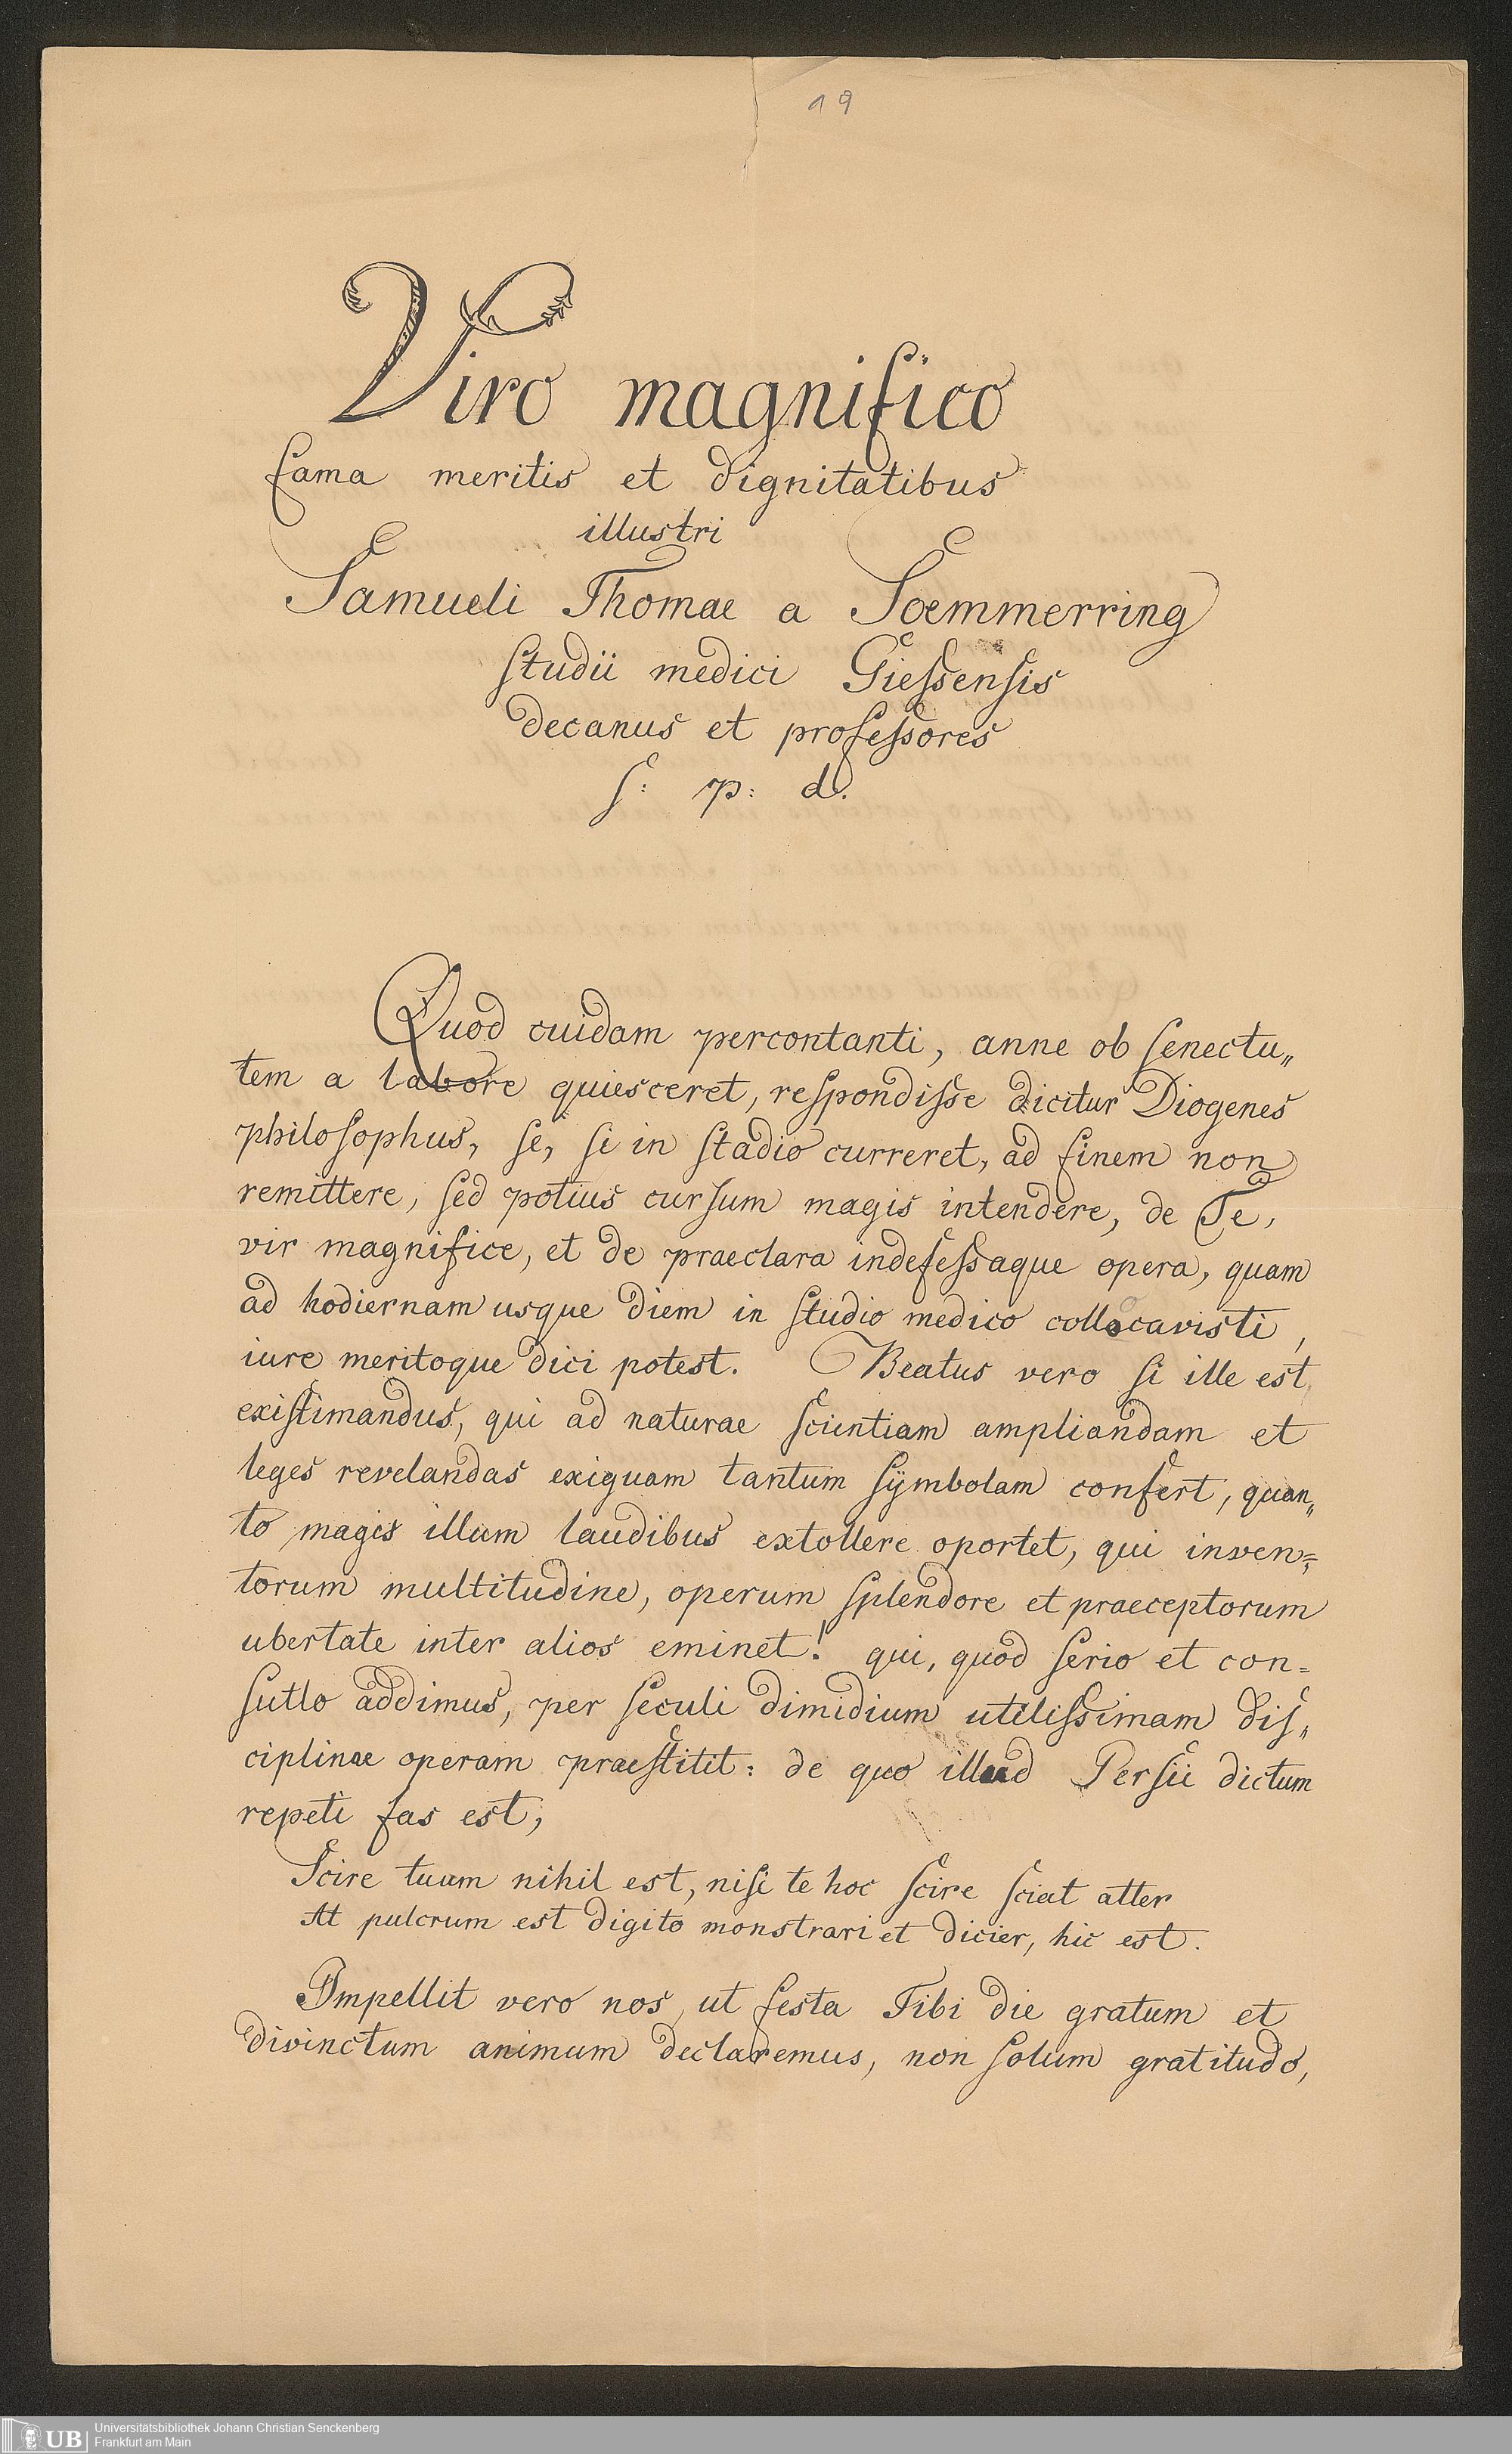 19
Viro magnifico
fama meritis et dignitatibus
illustri
Samueli Thomae a Soemmerring
ſtudii medici Gieſsenſis
decanus et profeſsores
ſ: p: d.
Quod cuidam percontanti, anne ob ſenectu„
tem a labore quiesceret, reſpondiſse dicitur Diogenes
philoſophus, ſe, ſi in ſtadio curreret, ad finem non
remittere, ſed potius curſum magis intendere, de Te,
vir magnifice, et de praeclara indefeſsaque opera, quam
ad hodiernam usque diem in ſtudio medico collocavisti,
iure meritoque dici potest. Beatus vero ſi ille est
exiſtimandus, qui ad naturae ſcientiam ampliandam et
leges revelandas exiguam tantum ſÿmbolam confert, quan„
to magis illum laudibus extollere oportet, qui inven=
torum multitudine, operum ſplendore et praeceptorum
ubertate inter alios eminet! qui, quod ſerio et con=
ſutlo addimus, per ſeculi dimidium utiliſsimam diſ„
ciplinae operam praeſtitit: de quo illud Perſii dictum
repeti fas est;
Scire tuum nihil est, niſi te hoc ſcire ſciat alter
At pulcrum est digito monstrari et dicier, hic est.
Impellit vero nos, ut festa Tibi die gratum et
divinctum animum declaremus, non ſolum gratitudo,
UB
Universitätsbibliothek Johann Christian Senckenberg
Frankfurt am Main